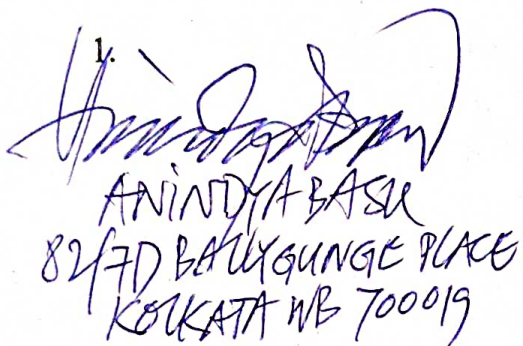 1.
Anindya Basu
ANINDYA BASU
82/7D BALLYGUNGE PLACE
KOLKATA WB 700019